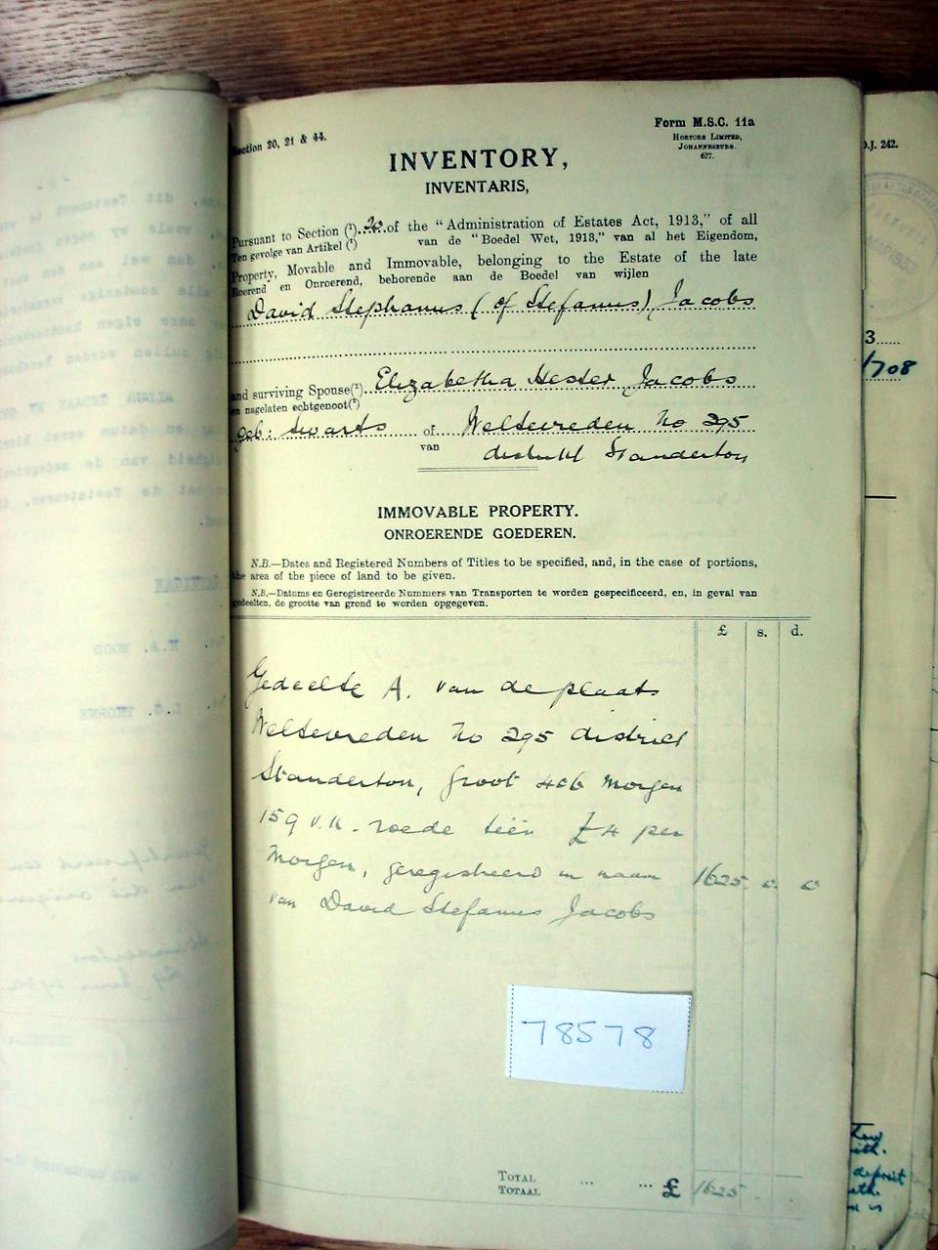 Section 20, 21 & 44.
Form M.S.C. 11a
HORTORS LIMITED,
JOHANNESBURG.
627.
INVENTORY,
INVENTARIS,
Pursuant to Section (¹)..20.of the "Administration of Estates Act, 1913," of all
Ten gevolge van Artikel (¹) van de "Boedel Wet, 1913," van al het Eigendom,
Property, Movable and Immovable, belonging to the Estate of the late
Roerend en Onroerend, behorende aan de Boedel van wijlen
David Stephanus (of Stefanus) Jacobs
and surviving Spouse(²) Elizabetha Hester Jacobs
en nagelaten echtgenoot(²)
geb: Swarts of Weltevreden No 295
van
distrikt Standerton
IMMOVABLE PROPERTY.
ONROERENDE GOEDEREN.
N.B.—Dates and Registered Numbers of Titles to be specified, and, in the case of portions,
the area of the piece of land to be given.
N.B.—Datums en Geregistreerde Nummers van Transporten te worden gespecificeerd, en, in geval van
gedeelten, de grootte van grond te worden opgegeven.
£ s. d.
Gedeelte A. van de plaats
Weltevreden No 295 district
Standerton, groot 406 morgen
159 v.k. roede teën £4 per
morgen, geregistreerd in naam 1625
van David Stefanus Jacobs
78578
TOTAL
TOTAAL ... ... £ 1625
D.J. 242.
3
/708
deposit